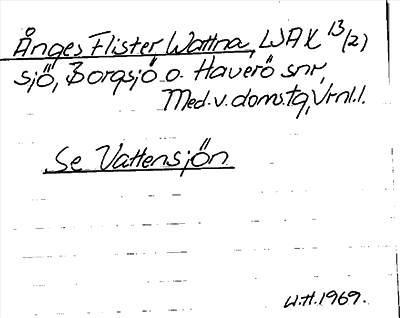 Ånges Flister, Wattna, LSAK 13/(2)
sjö, Borgsjö o. Haverö snr,
Med.v.doms.tg, Vrnl.l.
Se Vattensjön
W.H.1969.